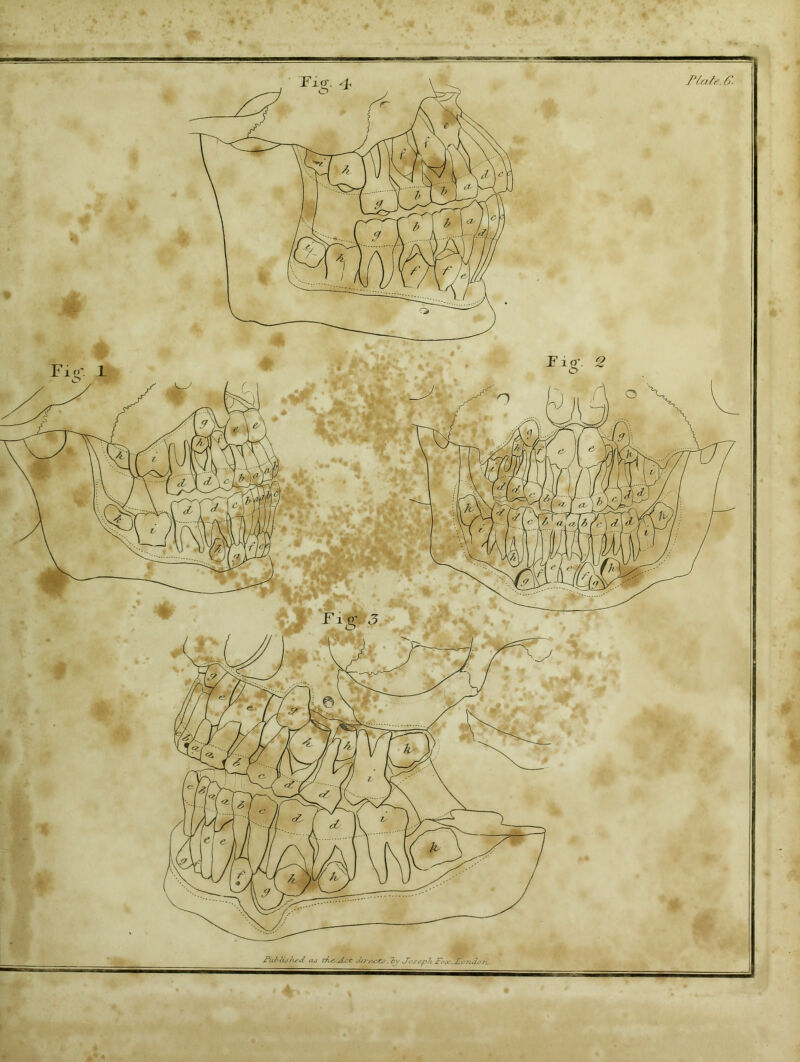 Plate.6.
Fig. 4
i h f f e
g b b a d c c
g b b a c c d
i h f f e
Fig. 1
g h e e
k i d d c b a a b
k i d d c b a a b c
h g f e
Fig. 2
g h f e e g h
k i d d c b a a b c d d i
k i d d c b a a b c d d i k
h g f e e f g h
Fig 3
g e e g h h k
b a a b c d d i
c b a a b c d d i k
g f e e f g h h
Published as the Act directs, by Joseph Fox, London.